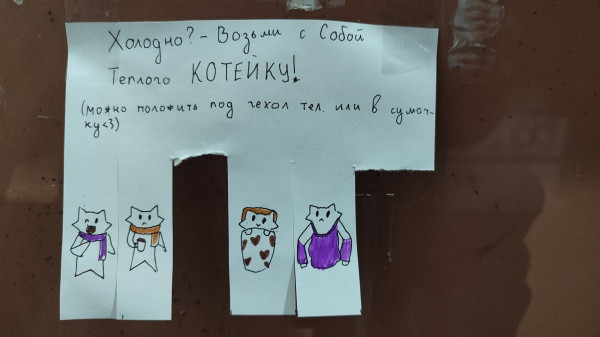 Холодно? - Возьми с Собой
Теплого КОТЕЙКУ!
(можно положить под чехол тел. или в сумоч-
ку<3)